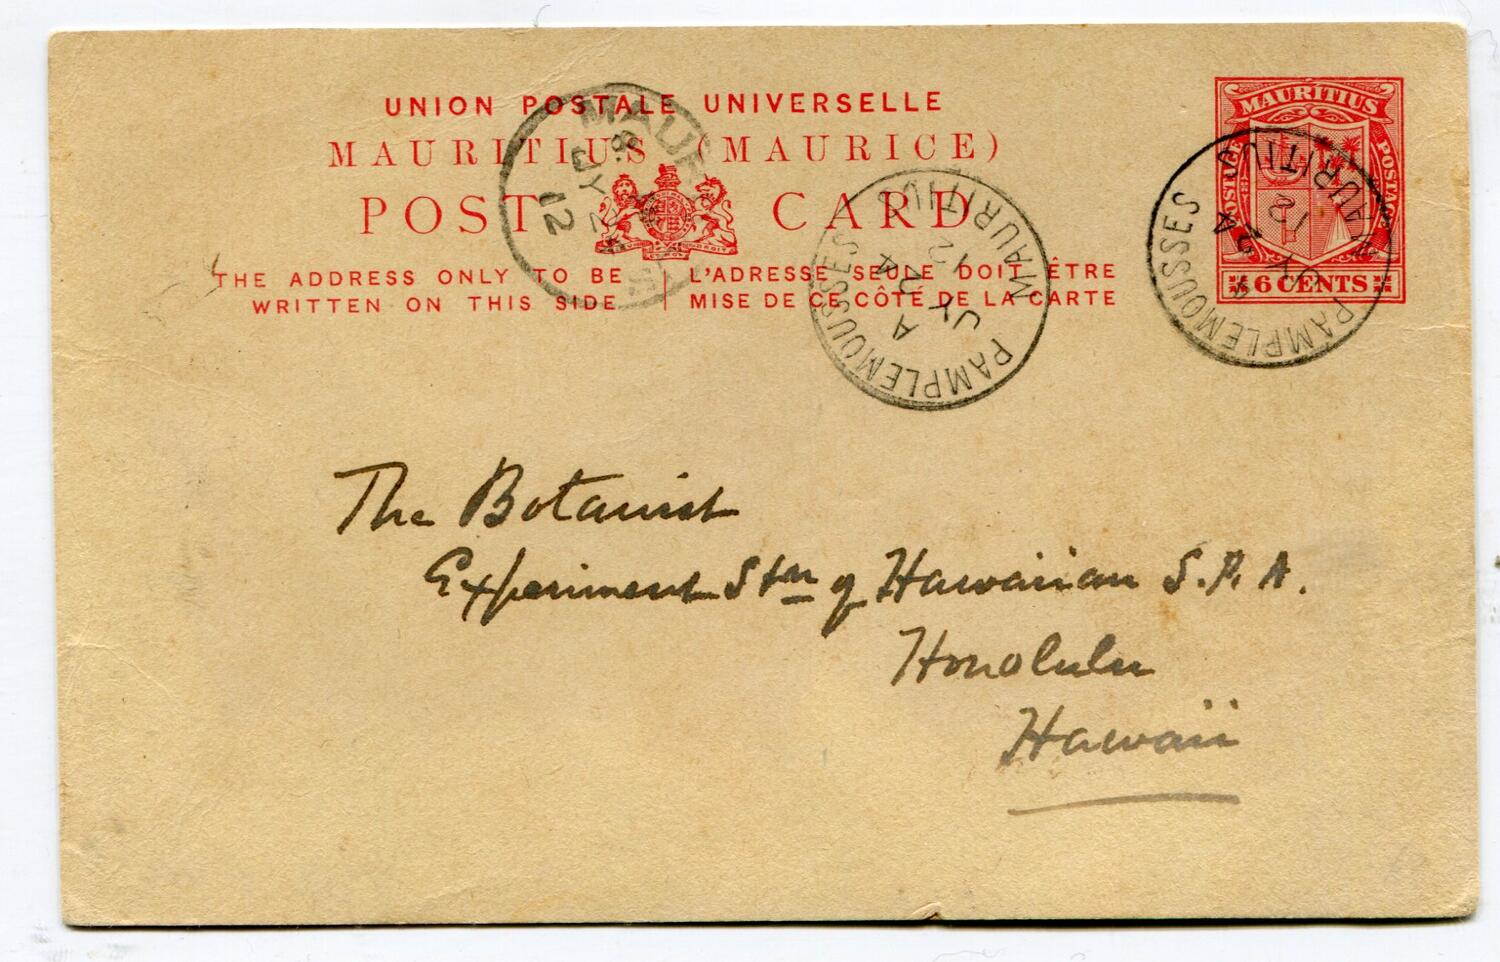 UNION POSTALE UNIVERSELLE
MAURITIUS (MAURICE)
POST CARD
THE ADDRESS ONLY TO BE
WRITTEN ON THIS SIDE
L'ADRESSE SEULE DOIT ÊTRE
MISE DE CE CÔTÉ DE LA CARTE
MAURITIUS
POSTAGE
POSTAGE
6 CENTS
PAMPLEMOUSSES
MAURITIUS
A
JY 24
12
PAMPLEMOUSSES
MAURITIUS
A
JY 24
12
JY
12
The Botanist
Experiment Stn of Hawaiian S.P.A.
Honolulu
Hawaii